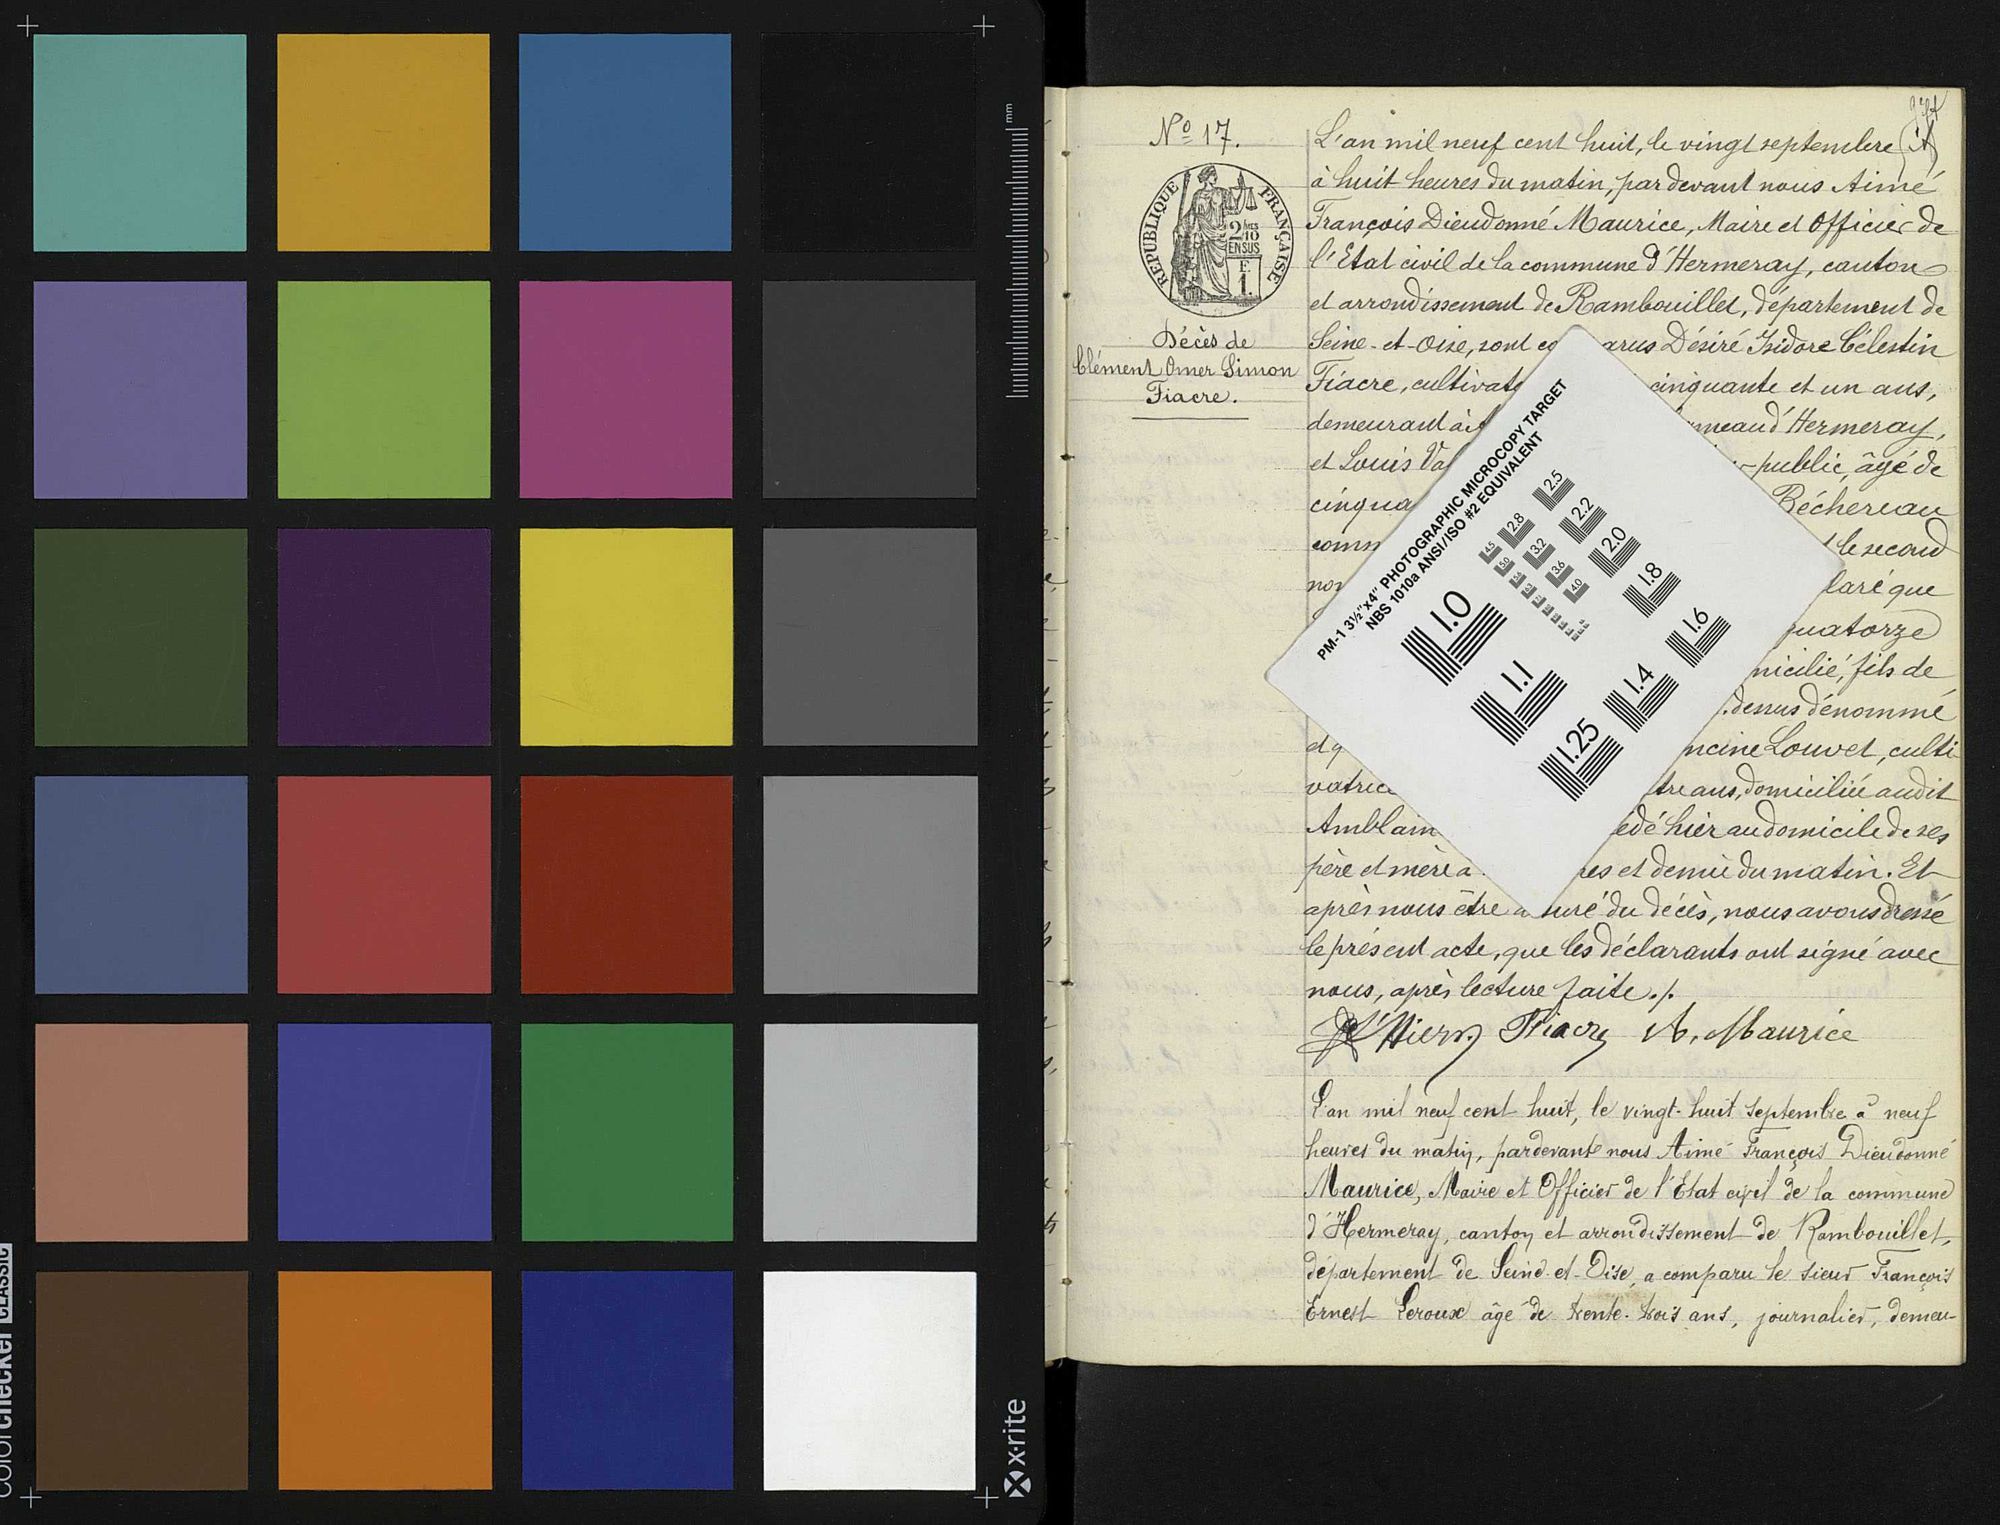 colorchecker CLASSIC
mm
x-rite
N° 17.
REPUBLIQUE FRANÇAISE
2 10
EN SUS
E
1.
Décès de
Clément Omer Simon
Fiacre.
L'an mil neuf cent huit, le vingt septembre
à huit heures du matin, pardevant nous Aimé
François Dieudonné Maurice, Maire et Officier de
l'Etat civil de la commune d'Hermeray, canton
et arrondissement de Rambouillet, département de
Seine-et-Oise, sont Désiré Isidore Célestin
Fiacre, cinquante et un ans,
demeurant d'Hermeray,
et Louis public, âgé de
Béchereau
le second
que
quatorze
fils de
dessus dénommé
Louvet, culti
domiciliée audit
hier au domicile de ses
père et mère et demie du matin. Et
après nous être du décès, nous avons dressé
le présent acte, que les déclarants ont signé avec
nous, après lecture faite ./.
Fiacre A. Maurice
L'an mil neuf cent huit, le vingt-huit septembre à neuf
heures du matin, pardevant nous Aimé François Dieudonné
Maurice, Maire et Officier de l'Etat civil de la commune
d'Hermeray, canton et arrondissement de Rambouillet,
département de Seine-et-Oise, a comparu le sieur François
Ernest Leroux âgé de trente-trois ans, journalier, demeu-
PM-1 3½"x4" PHOTOGRAPHIC MICROCOPY TARGET
NBS 1010a ANSI/ISO #2 EQUIVALENT
1.0
1.1
1.25
1.4
1.6
1.8
2.0
2.2
2.5
2.8
3.2
3.6
4.0
4.5
5.0